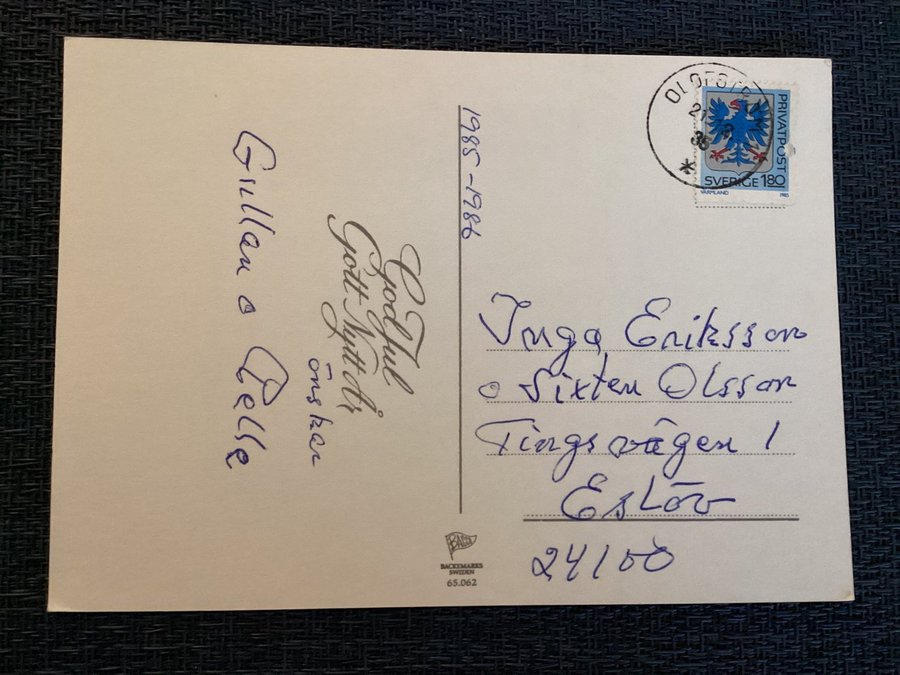 God Jul
Gott Nytt År
önskar
Gullan o Pelle
1985-1986
PRIVATPOST
SVERIGE 180
VÄRMLAND 1985
Inga Eriksson
o Sixten Olsson
Tingsvägen 1
Eslöv
24100
BACKEMARKS
SWEDEN
65.062